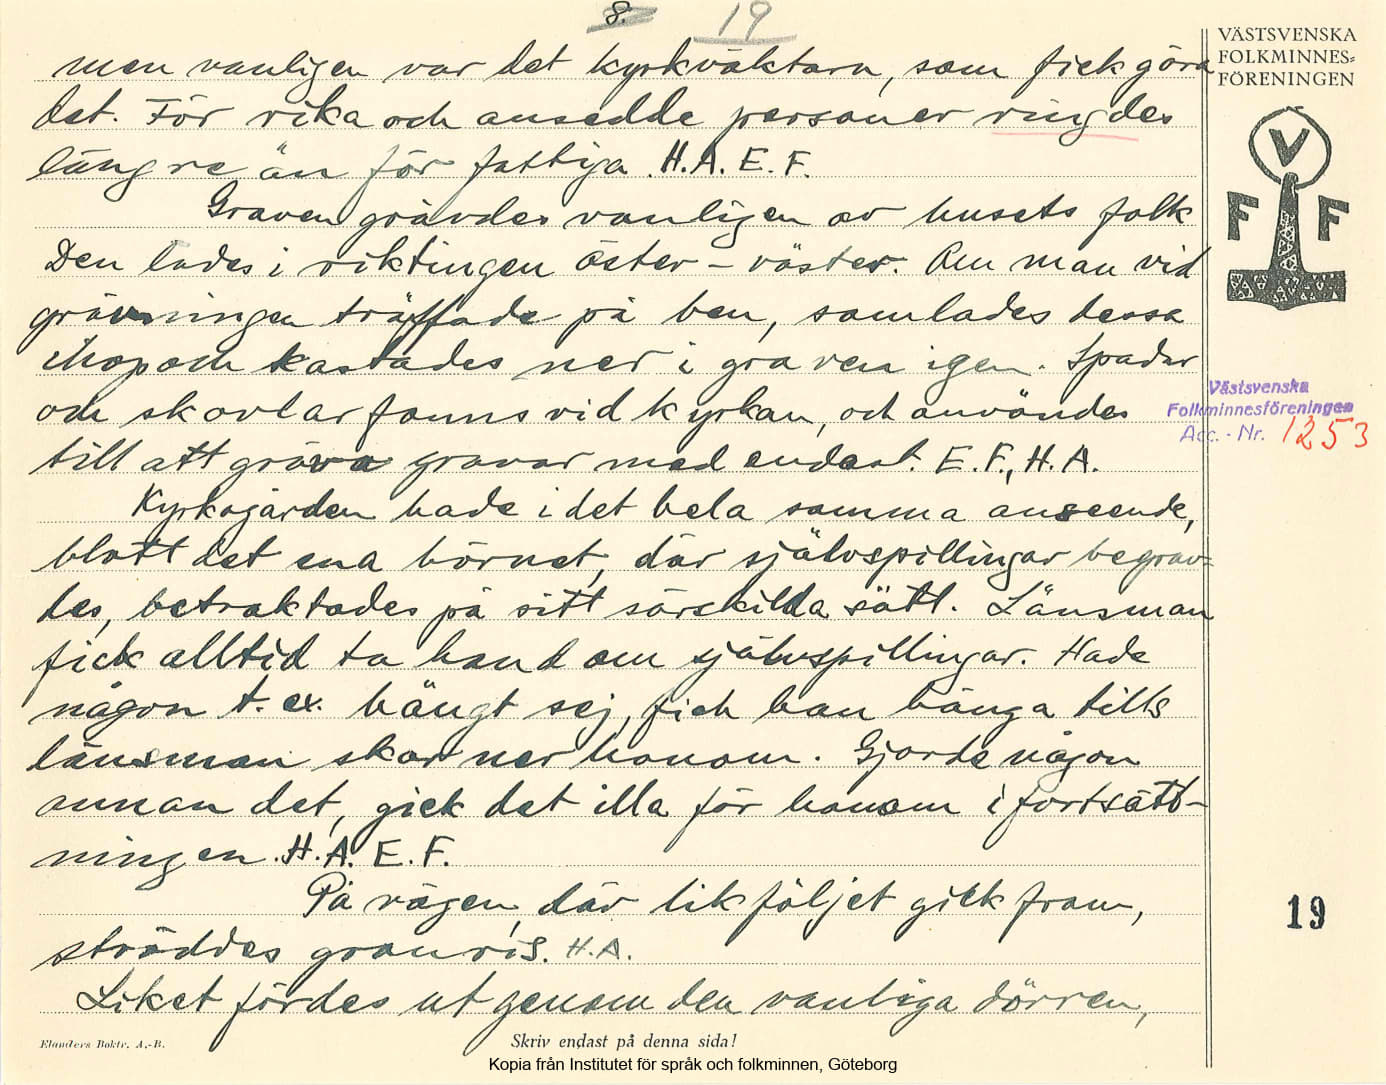 8. 19
VÄSTSVENSKA
FOLKMINNES-
FÖRENINGEN
men vanligen var det kyrkväktarn, som fick göra
det. För rika och ansedda personer ringdes
längre än för fattiga. H.A. E.F.
Graven grävdes vanligen av husets folk
Den lades i riktingen öster – väster. Om man vid
grävningen träffade på ben, samlades dessa
ihop och kastades ner i graven igen. Spadar
och skovlar fanns vid kyrkan, och användes
till att gräva gravar med endast. E.F., H.A.
Kyrkogården hade i det hela samma anseende,
blott det ena hörnet, där självspillingar begrav-
des, betraktades på sitt särskilda sätt. Länsman
fick alltid ta hand om självspillingar. Hade
någon t. ex. hängt sej, fick han hänga tills
länsman skar ner honom. Gjorde någon
annan det, gick det illa för honom i fortsätt-
ningen. H.A. E.F.
På vägen, där likföljet gick fram,
ströddes granris. H.A.
Liket fördes ut genom den vanliga dörren,
V
F F
Västsvenska
Folkminnesföreningen
Acc. - Nr. 1253
19
Elanders Boktr. A.-B.
Skriv endast på denna sida!
Kopia från Institutet för språk och folkminnen, Göteborg